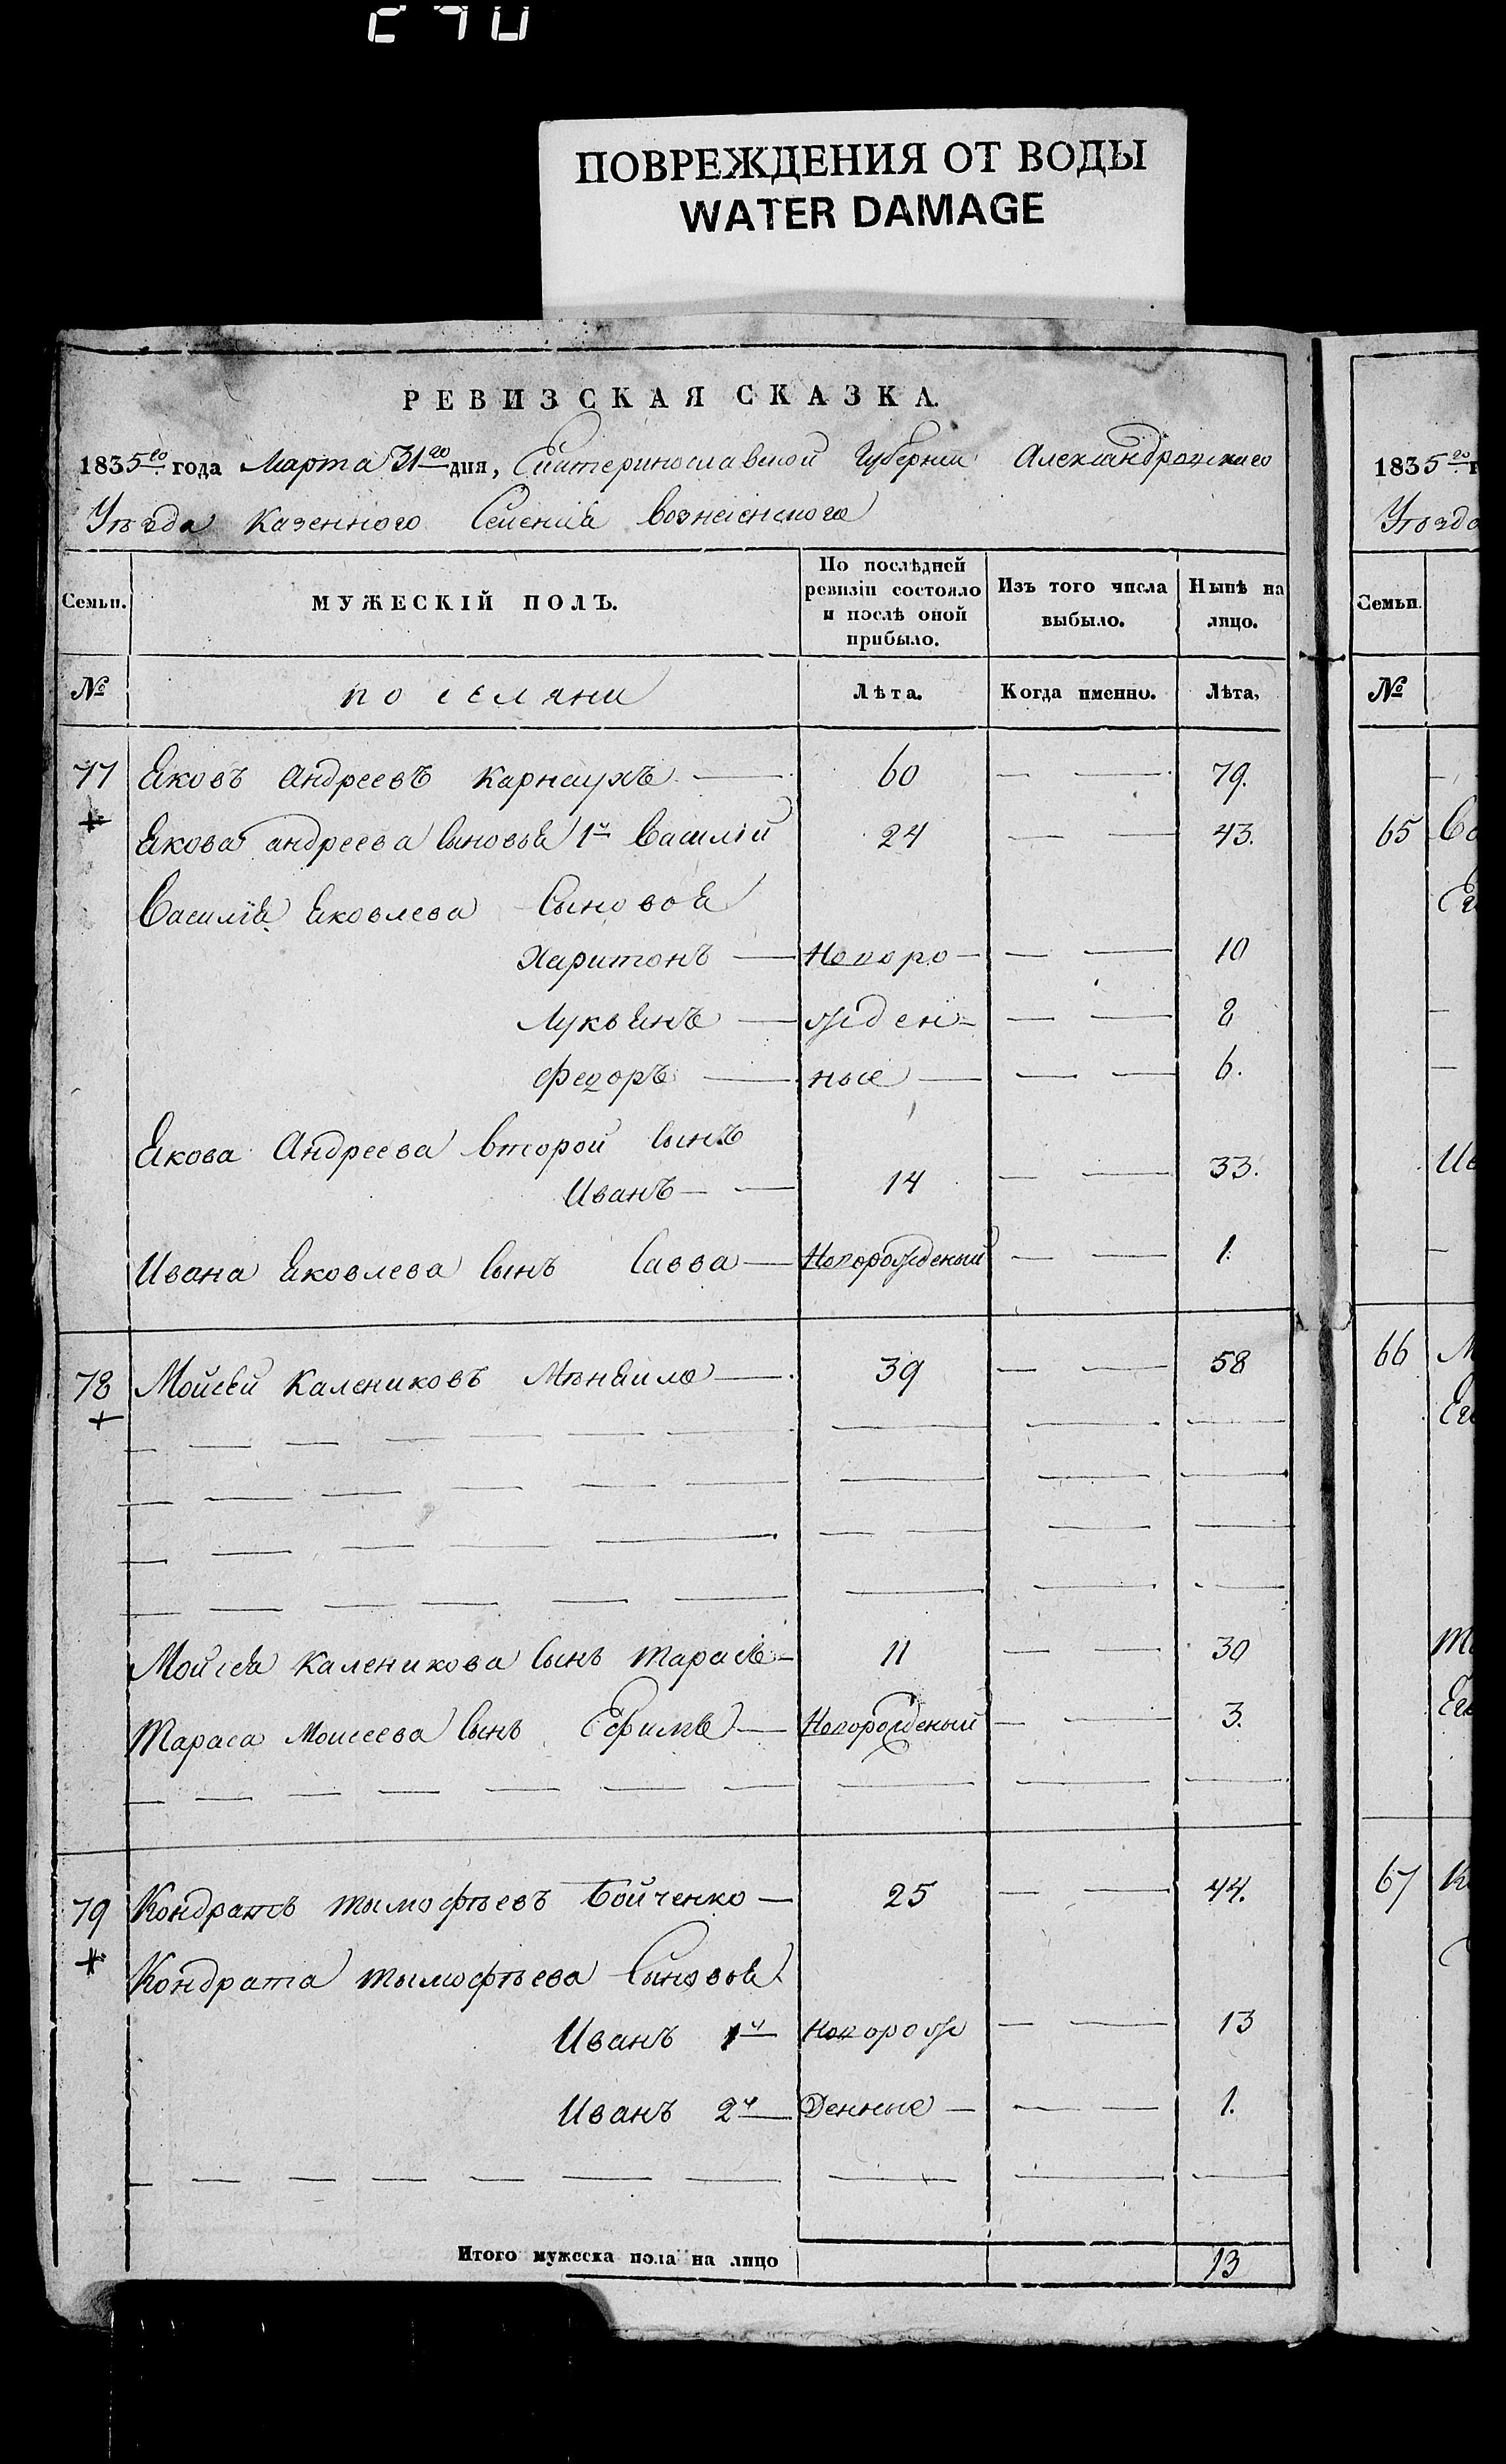 ПОВРЕЖДЕНИЯ ОТ ВОДЫ
WATER DAMAGE
РЕВИЗСКАЯ СКАЗКА.
1835го года Марта 31го дня, Екатеринославской Губернии Александровского
Уѣзда Казенного Селенія Вознесенского
Семьи. МУЖЕСКІЙ ПОЛЪ. По послѣдней ревизіи состояло и послѣ оной прибыло. Изъ того числа выбыло. Нынѣ на лицо.
№ поселяни Лѣта. Когда именно. Лѣта,
77 Яковъ Андреевъ Карнаухъ 60 79.
Якова андреева сыновья 1й Василій 24 43.
Василія Яковлева Сыновья
Харитонъ Новоро 10
Лукьянъ жден 8
Федоръ ные 6.
Якова Андреева второй сынъ
Иванъ 14 33.
Ивана Яковлева сынъ Савва Новорожденый 1.
78 Мойсей Калениковъ 39 58
Мойсея Каленикова сынъ Тарасъ 11 30
Тараса Моисеева сынъ Ефимъ Новорожденый 3.
79 Кондратъ тымофѣевъ Бойченко 25 44.
Кондрата тымофѣева Сыновья
Иванъ 1йНоворож 13
Иванъ 2й денные 1.
Итого мужеска пола на лицо 13
1835го
Уѣзда
Семьи.
№
65
66
67